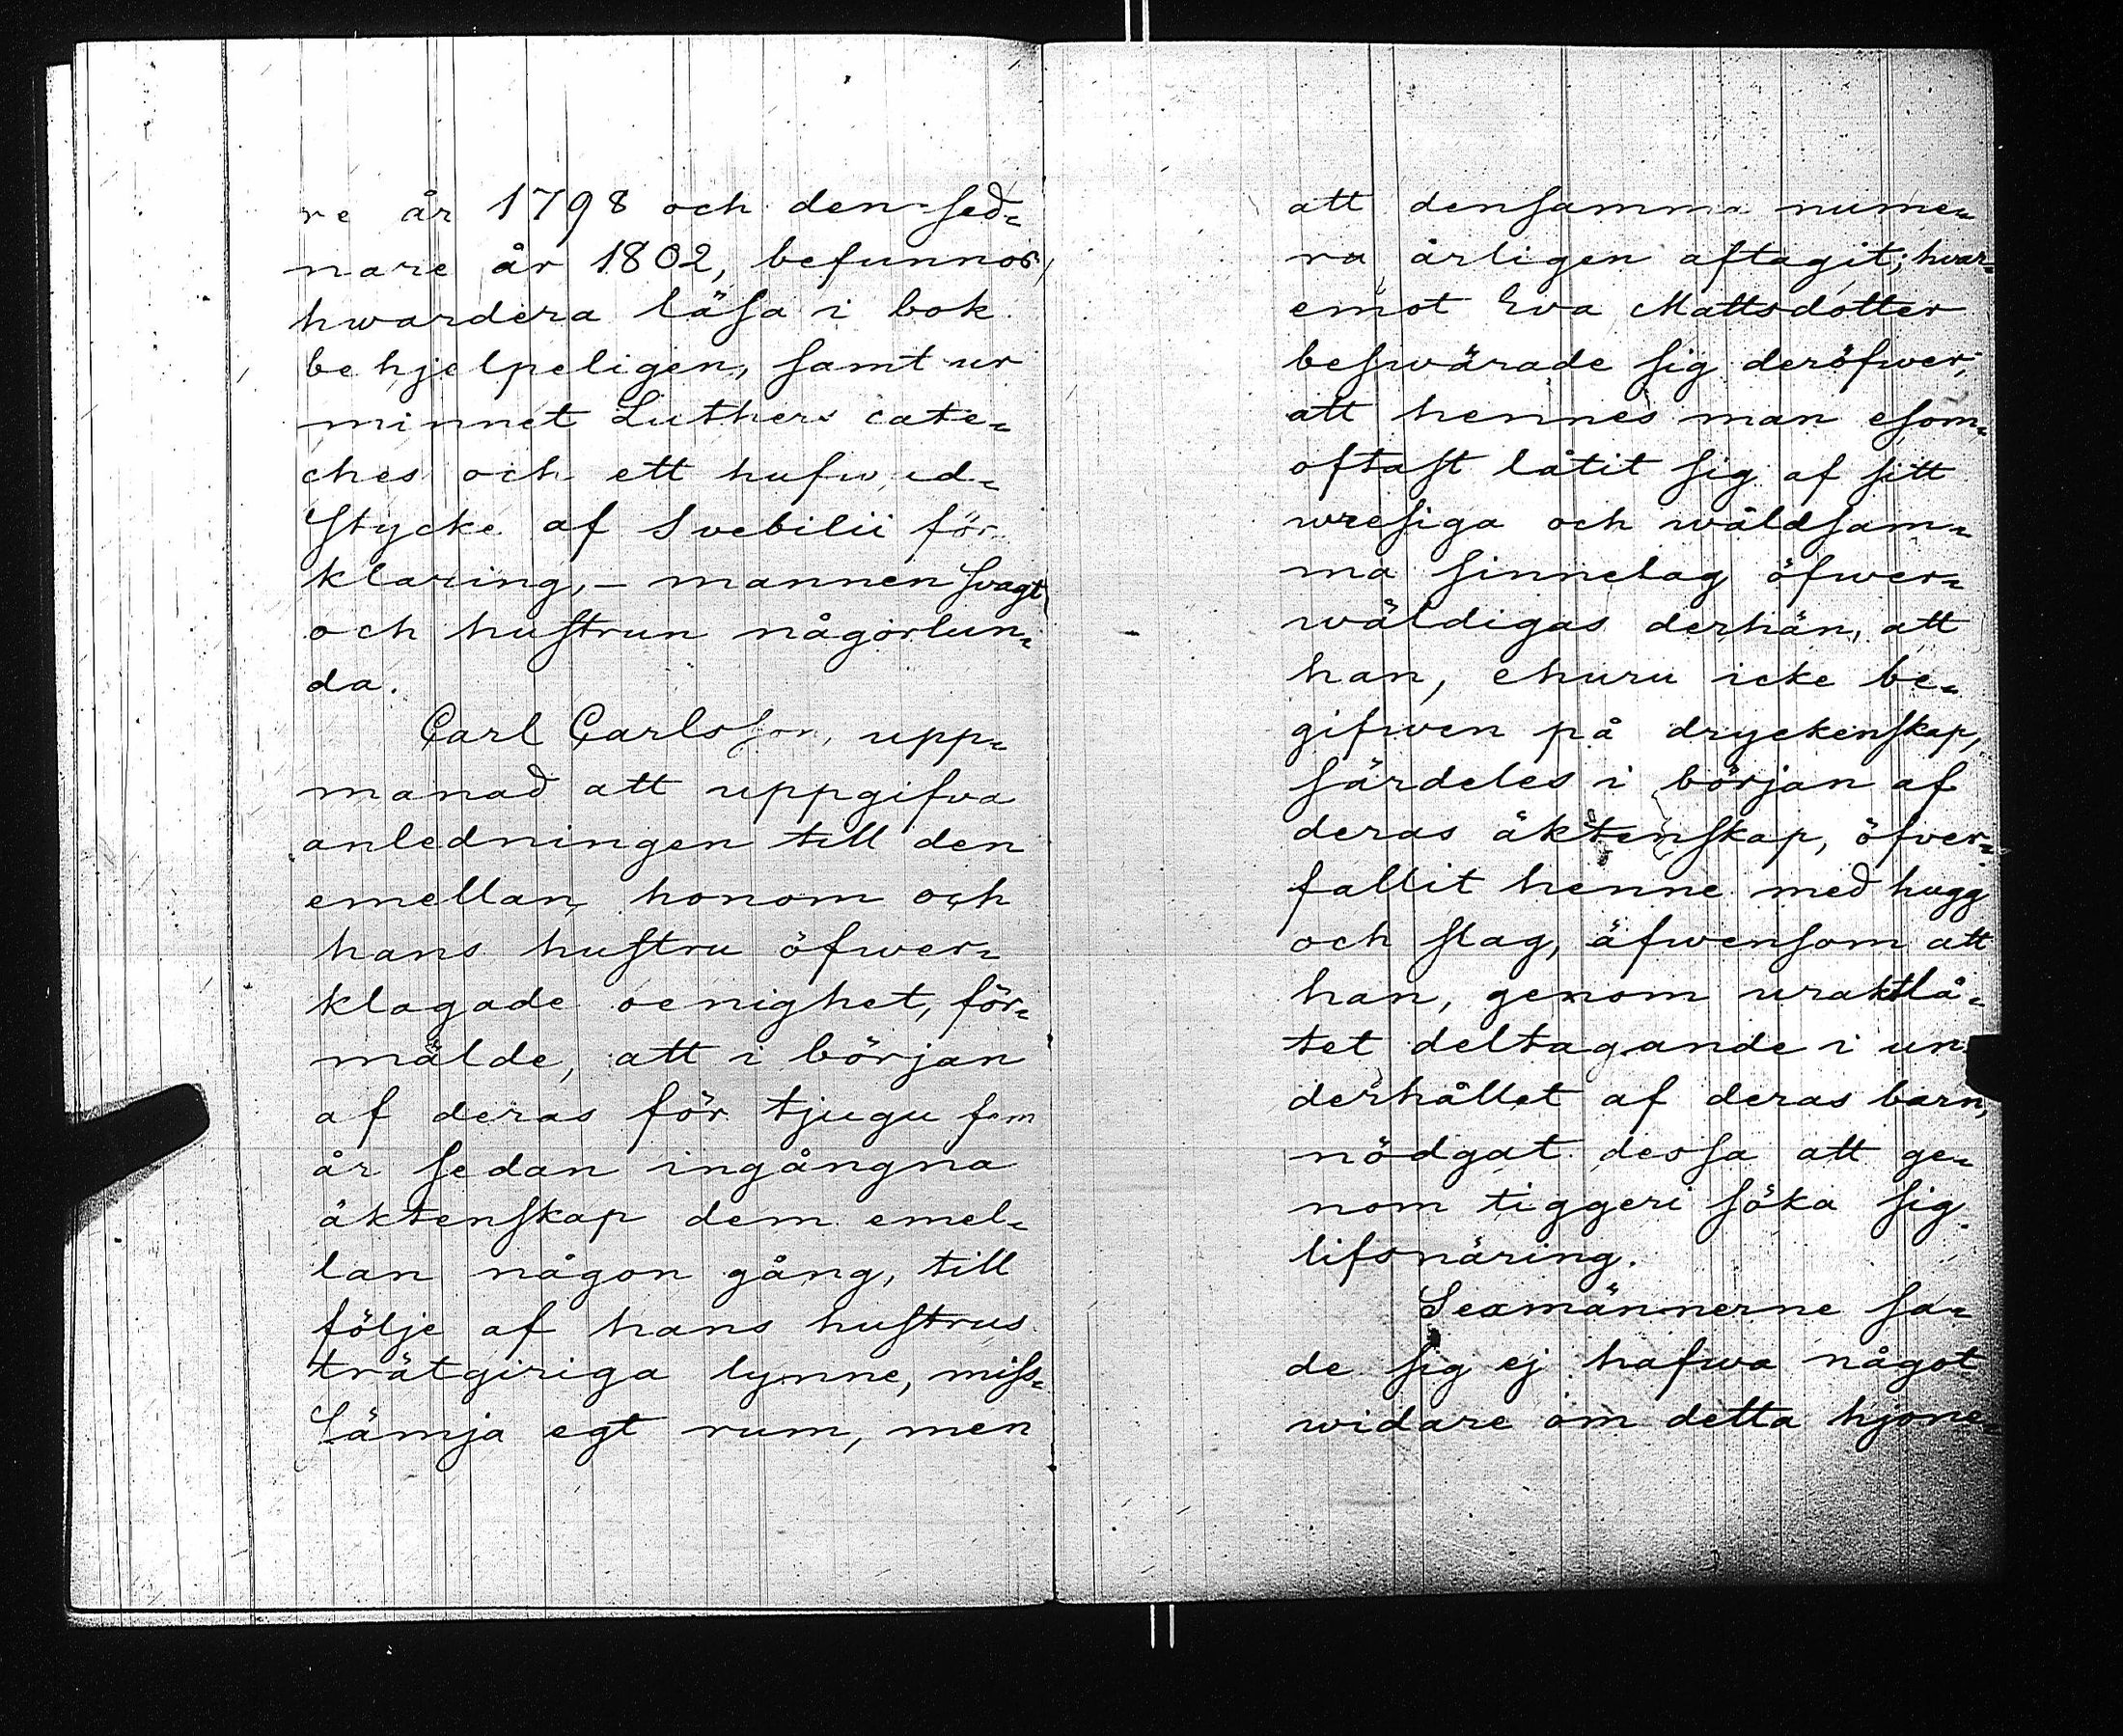 re år 1798 och den sed-
nare år 1802, befunnos
hwardera läsa i bok
behjelpeligen, samt ur
minnet Luthers cate-
ches och ett hufwud-
stycke af Svebilii för-
klaring, – mannen svagt
och hustrun någorlun-
da.
Carl Carlsson, upp-
manad att uppgifva
anledningen till den
emellan honom och
hans hustru öfwer-
klagade oenighet, för-
mälde, att i början
af deras för tjugu fem
år sedan ingångna
äktenskap dem emel-
lan någon gång, till
följe af hans hustrus
trätgiriga lynne, miss-
sämja egt rum, men
att densamma nume-
ra årligen aftagit; hvar-
emot Eva Mattsdotter
beswärade sig deröfwer,
att hennes man esom-
oftast låtit sig af sitt
wresiga och wåldsam-
ma sinnelag öfwer-
wäldigas derhän, att
han, ehuru icke be-
gifwen på dryckenskap,
särdeles i början af
deras äktenskap, öfver-
fallit henne med hugg
och slag, äfwensom att
han, genom uraktlå-
tet deltagande i un-
derhållet af deras barn,
nödgat dessa att ge-
nom tiggeri söka sig
lifsnäring.
Sexmännerne sa-
de sig ej hafwa något
widare om detta hjone-